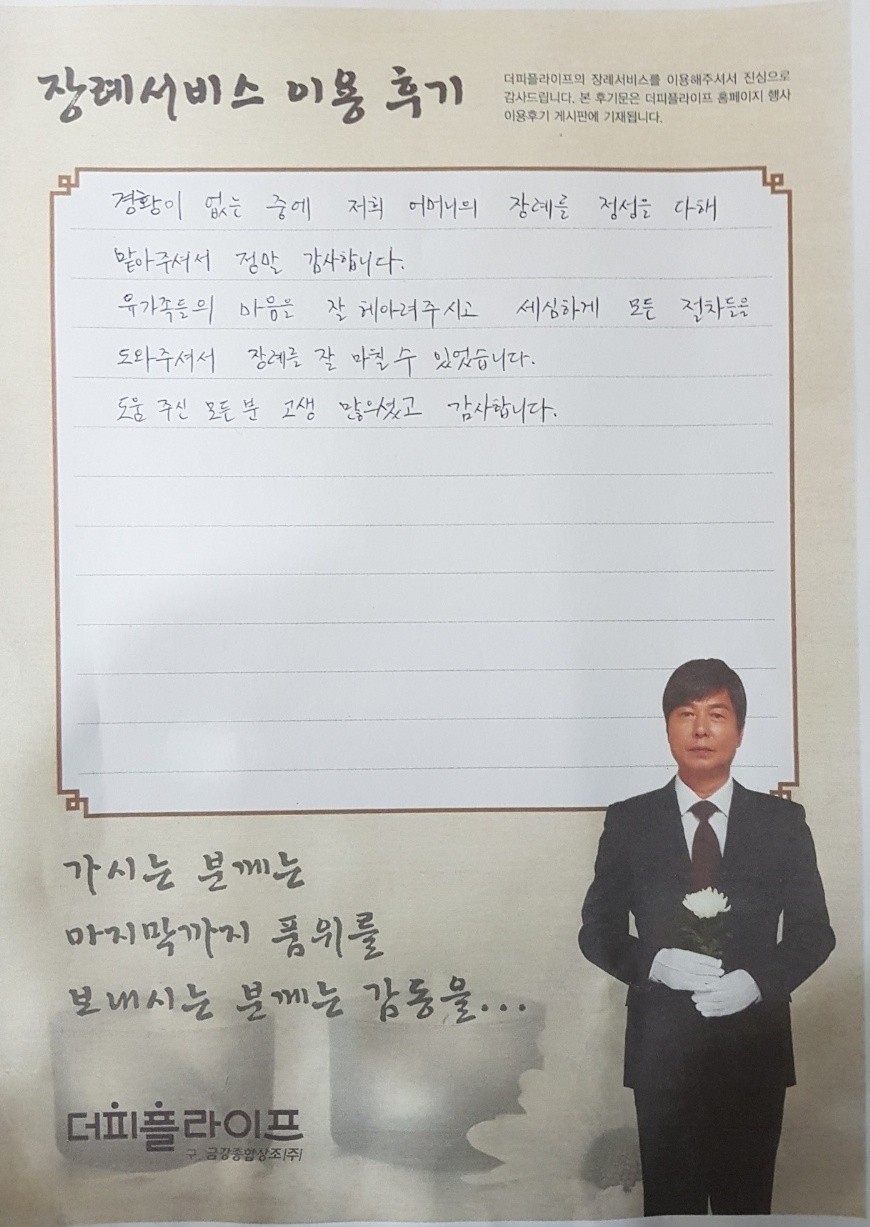 장례서비스 이용 후기
더피플라이프의 장례서비스를 이용해주셔서 진심으로
감사드립니다. 본 후기문은 더피플라이프 홈페이지 행사
이용후기 게시판에 기재됩니다.
경황이 없는 중에 저희 어머니의 장례를 정성을 다해
맡아주셔서 정말 감사합니다.
유가족들의 마음을 잘 헤아려주시고 세심하게 모든 절차들을
도와주셔서 장례를 잘 마칠 수 있었습니다.
도움 주신 모든 분 고생 많으셨고 감사합니다.
가시는 분께는
마지막까지 품위를
보내시는 분께는 감동을...
더피플라이프
구. 금강종합상조(주)